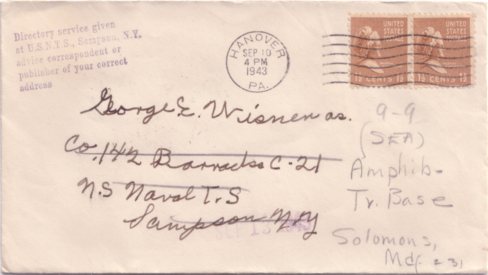 Directory service given
at U.S.N.T.S., Sampson, N.Y.
advice correspondent or
publisher of your correct
address
HANOVER
SEP 10
4 PM
1943
PA.
UNITED
STATES
1½ CENTS 1½
UNITED
STATES
1½ CENTS 1½
George E. Wisner as.
Co. 142 Barracks C-21
U.S Naval T.S
Sampson N.Y
SEP 13
9-9
(SEA)
Amphib-
Tr. Base
Solomons,
Md.